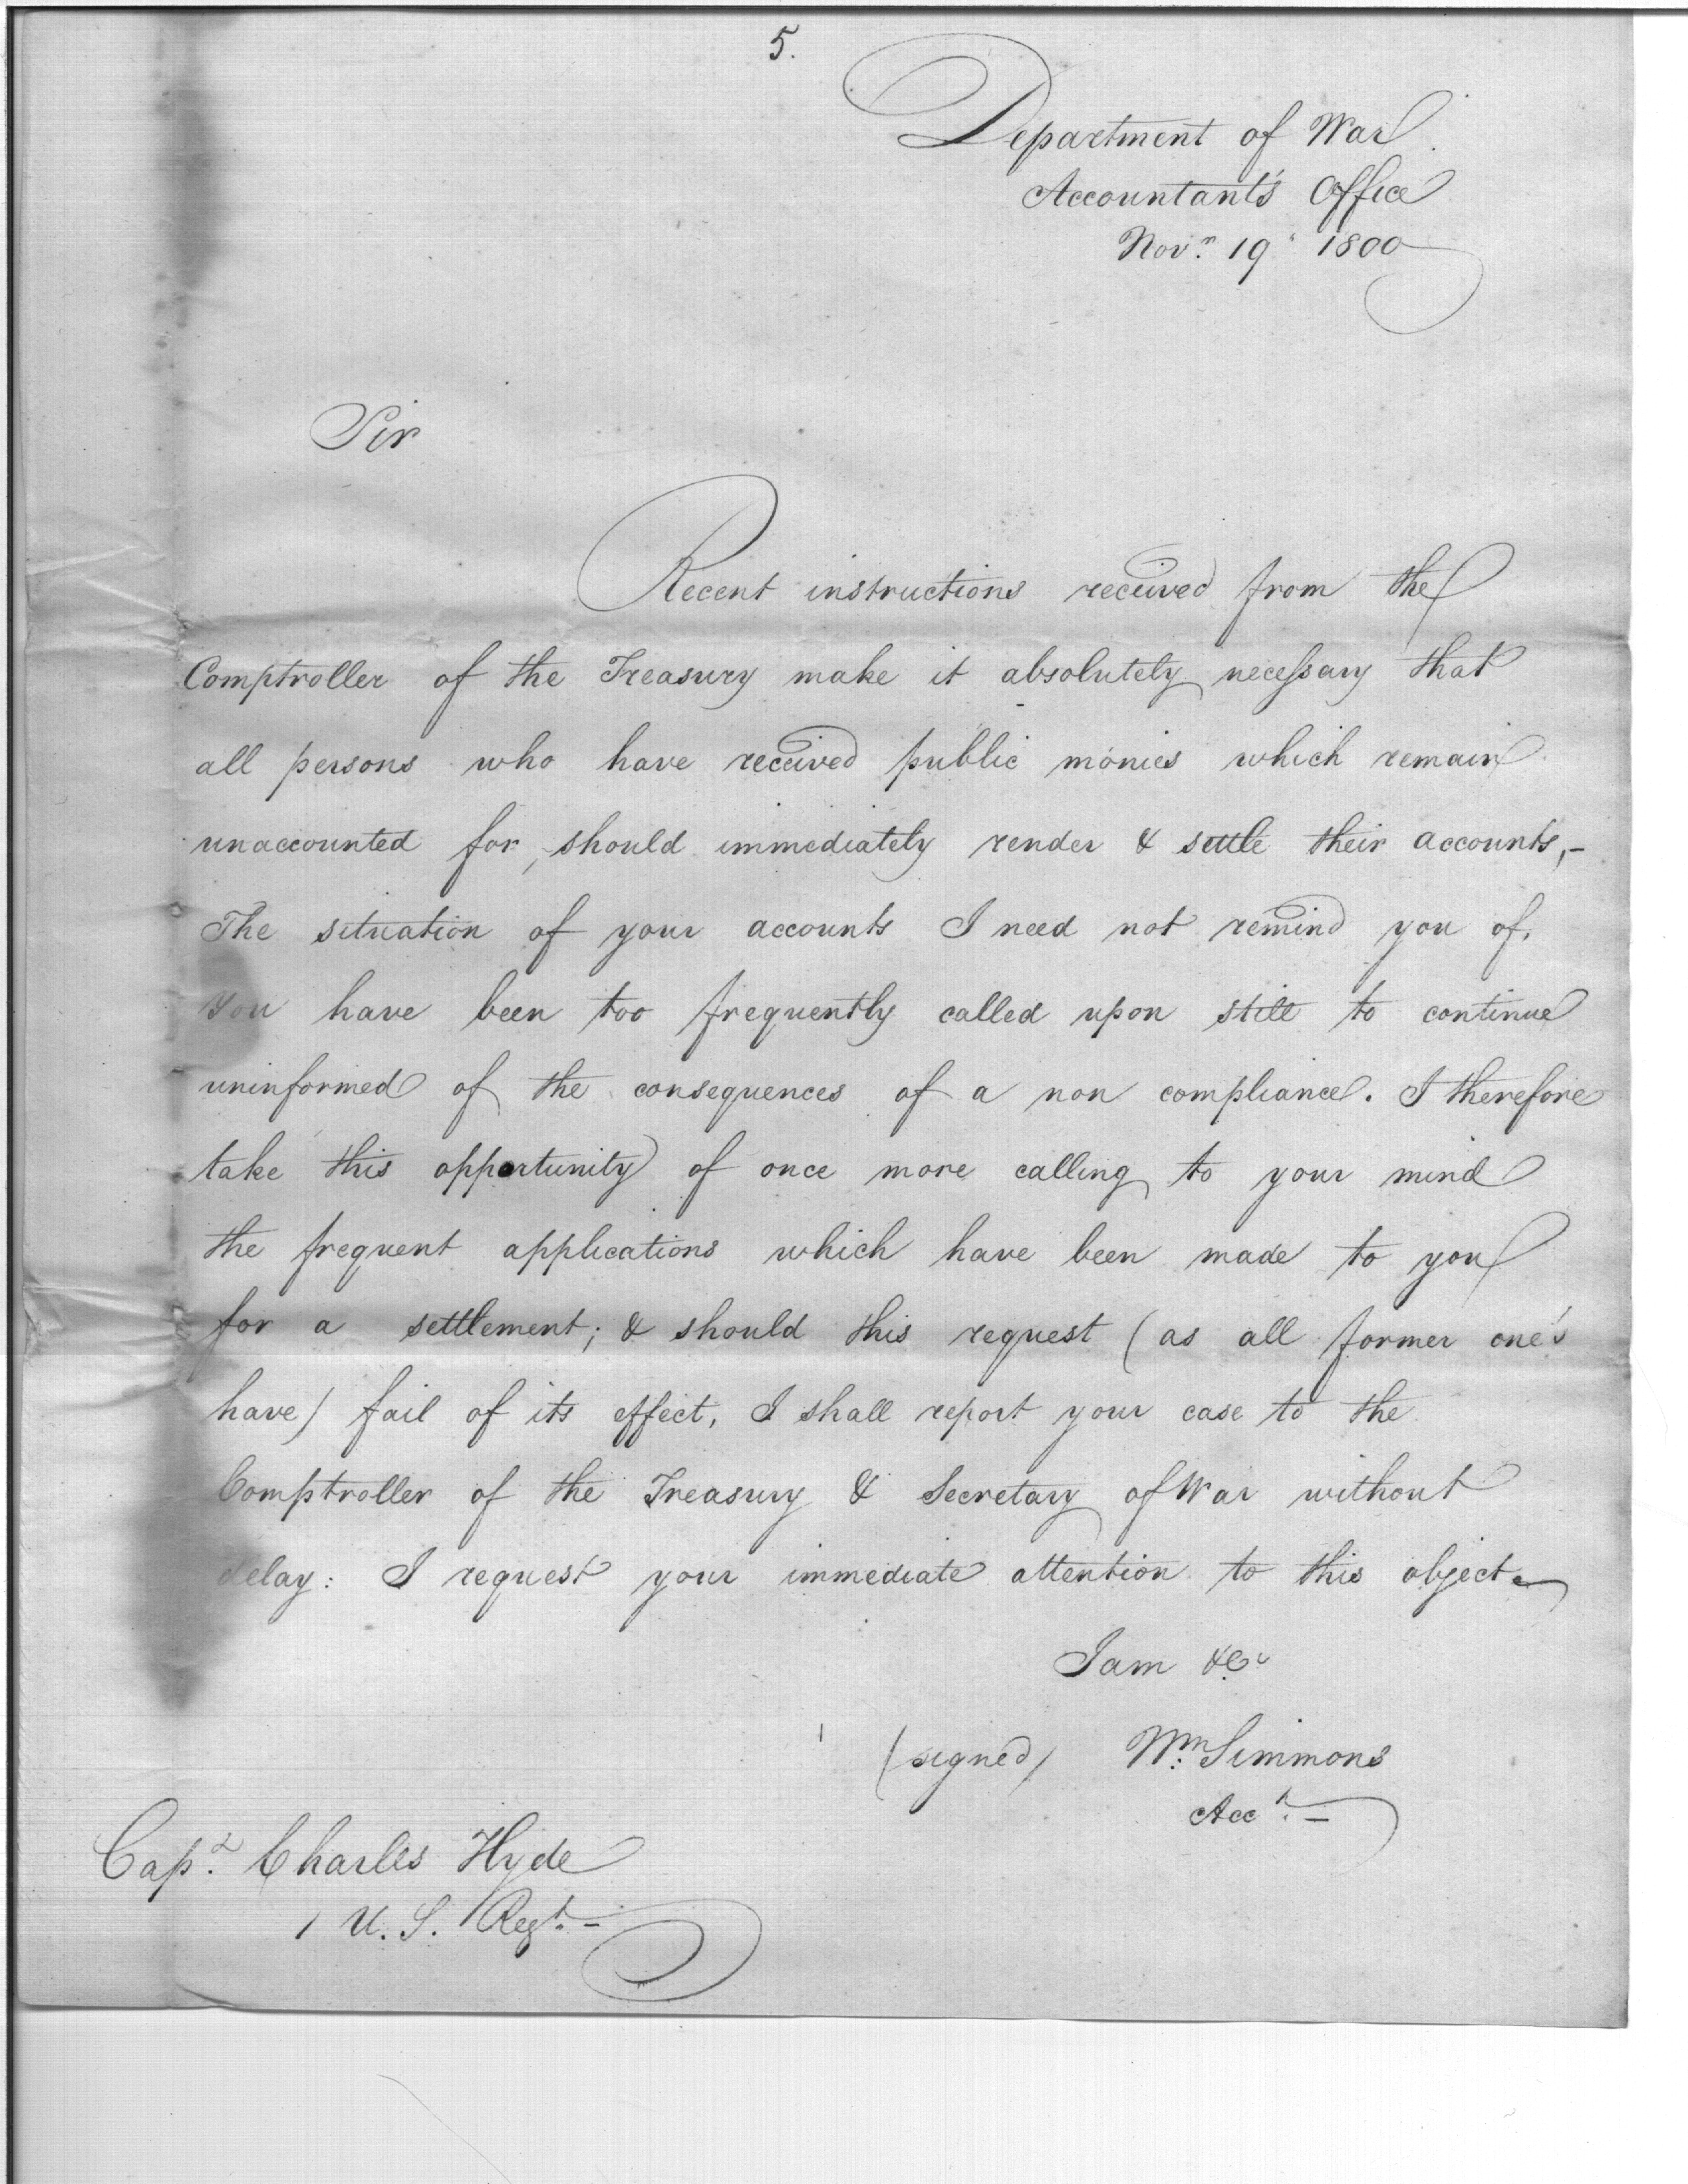 5.
Department of War
Accountant's Office
Novr. 19 1800
Sir
Recent instructions received from the
Comptroller of the Treasury make it absolutely necessary that
all persons who have received public monies which remain
unaccounted for, should immediately render & settle their accounts,-
The situation of your accounts I need not remind you of.
You have been too frequently called upon still to continue
uninformed of the consequences of a non compliance. I therefore
take this opportunity of once more calling to your mind
the frequent applications which have been made to you
for a settlement; & should this request (as all former one's
have) fail of its effect, I shall report your case to the
Comptroller of the Treasury & Secretary of War without
delay: I request your immediate attention to this object
I am &c
(signed) Wm. Simmons
Acct. -
Capt. Charles Hyde
1 U. S. Regt. -